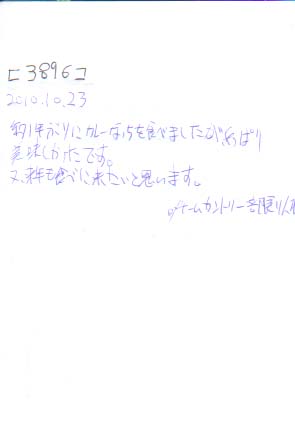 [3896]
2010.10.23
約1年ぶりにカレーを食べましたが、やっぱり
美味しかったです。
又、来年も食べに来たいと思います。
ゲームカントリー